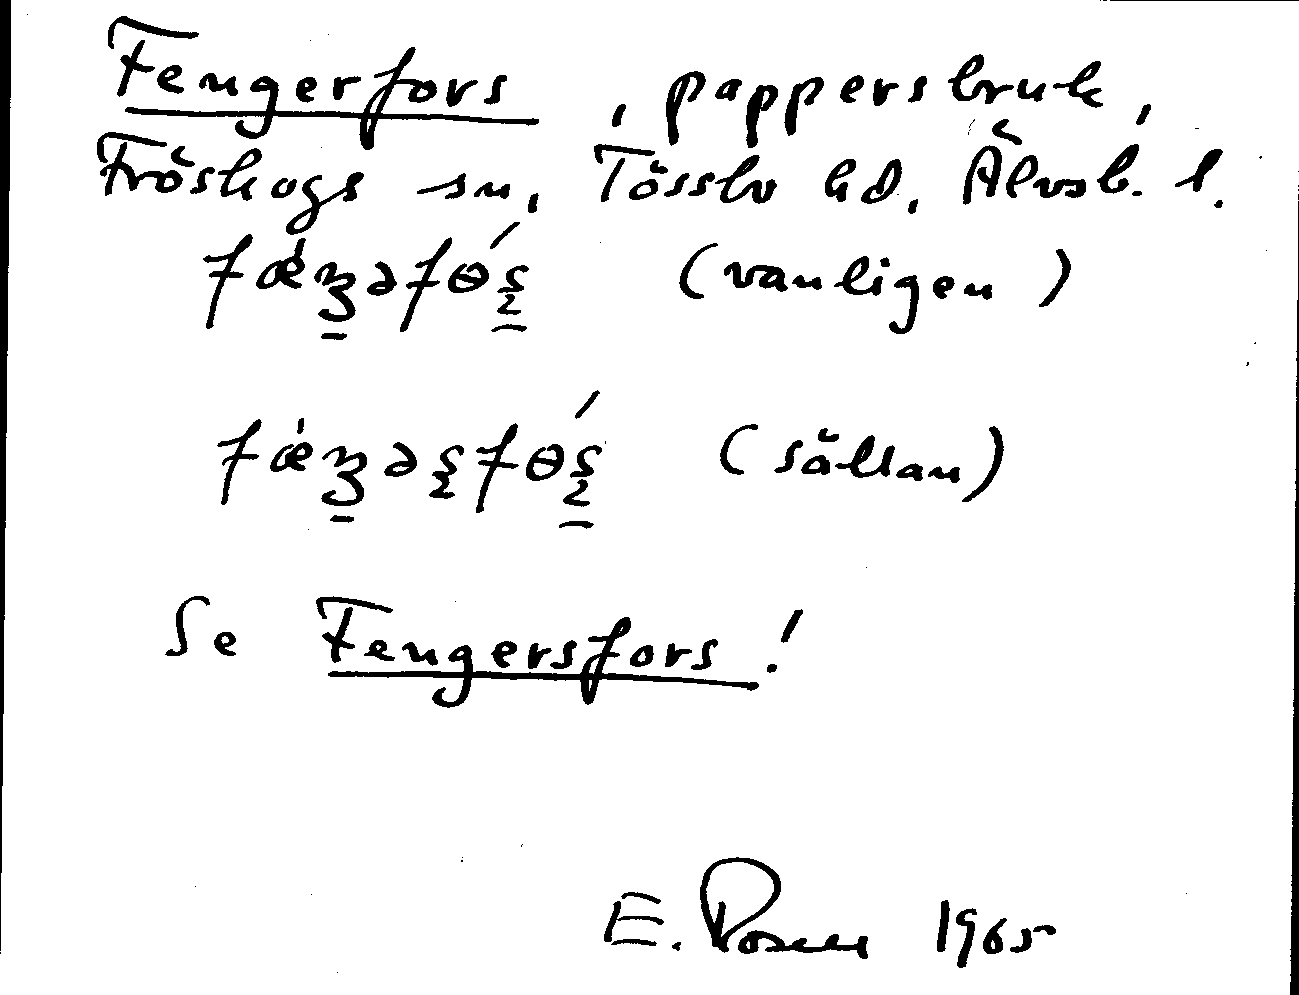 Fengerfors, pappersbruk,
Fröskogs sn, Tössbo hd, Älvsb. l.
(vanligen)
(sällan)
Se Fengersfors!
E. Rosell 1965